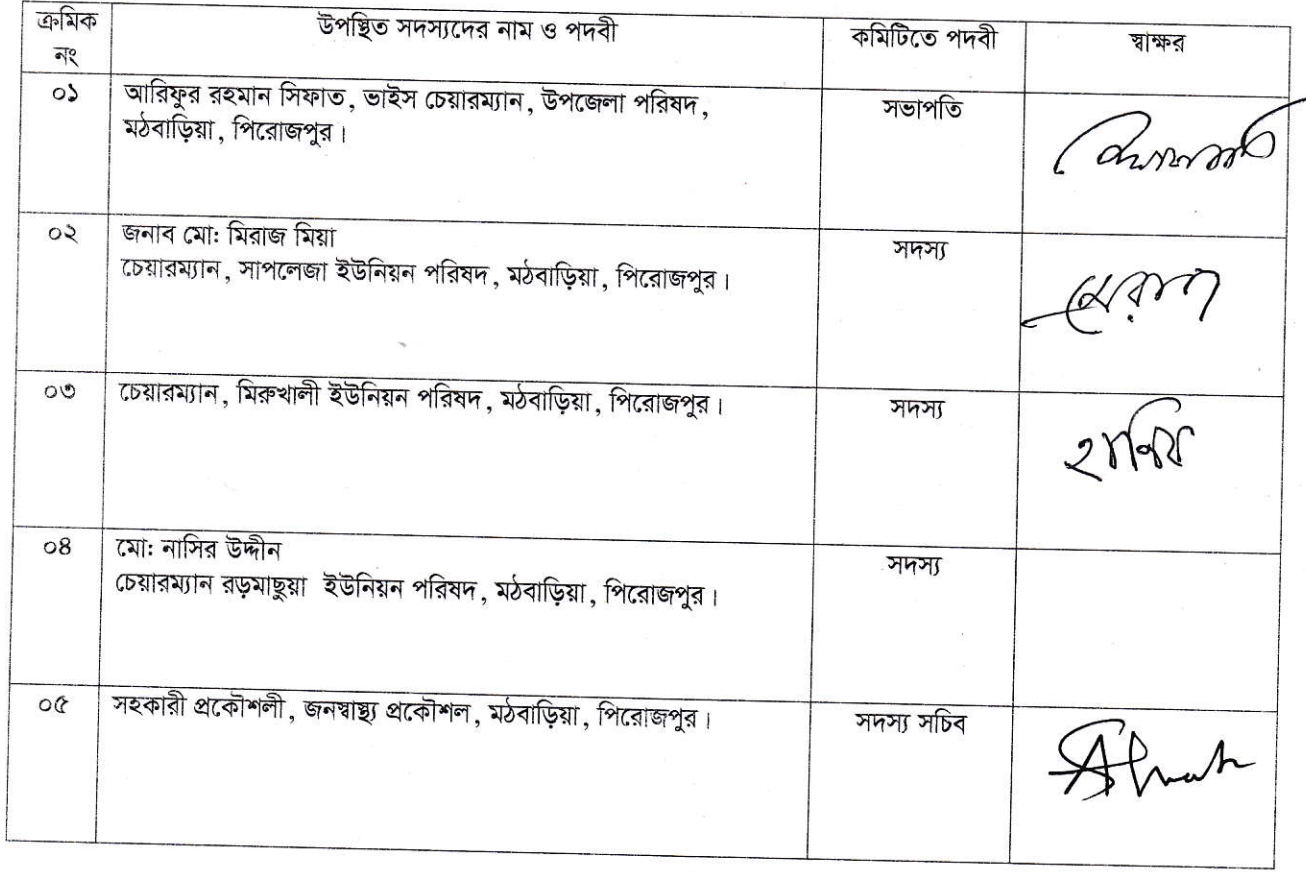 ক্রমিক নং উপস্থিত সদস্যদের নাম ও পদবী কমিটিতে পদবী স্বাক্ষর
০১ আরিফুর রহমান সিফাত, ভাইস চেয়ারম্যান, উপজেলা পরিষদ, সভাপতি
মঠবাড়িয়া, পিরোজপুর।
০২ জনাব মোঃ মিরাজ মিয়া সদস্য
চেয়ারম্যান, সাপলেজা ইউনিয়ন পরিষদ, মঠবাড়িয়া, পিরোজপুর।
০৩ চেয়ারম্যান, মিরুখালী ইউনিয়ন পরিষদ, মঠবাড়িয়া, পিরোজপুর। সদস্য
০৪ মোঃ নাসির উদ্দীন সদস্য
চেয়ারম্যান রড়মাছুয়া ইউনিয়ন পরিষদ, মঠবাড়িয়া, পিরোজপুর।
০৫ সহকারী প্রকৌশলী, জনস্বাস্থ্য প্রকৌশল, মঠবাড়িয়া, পিরোজপুর। সদস্য সচিব